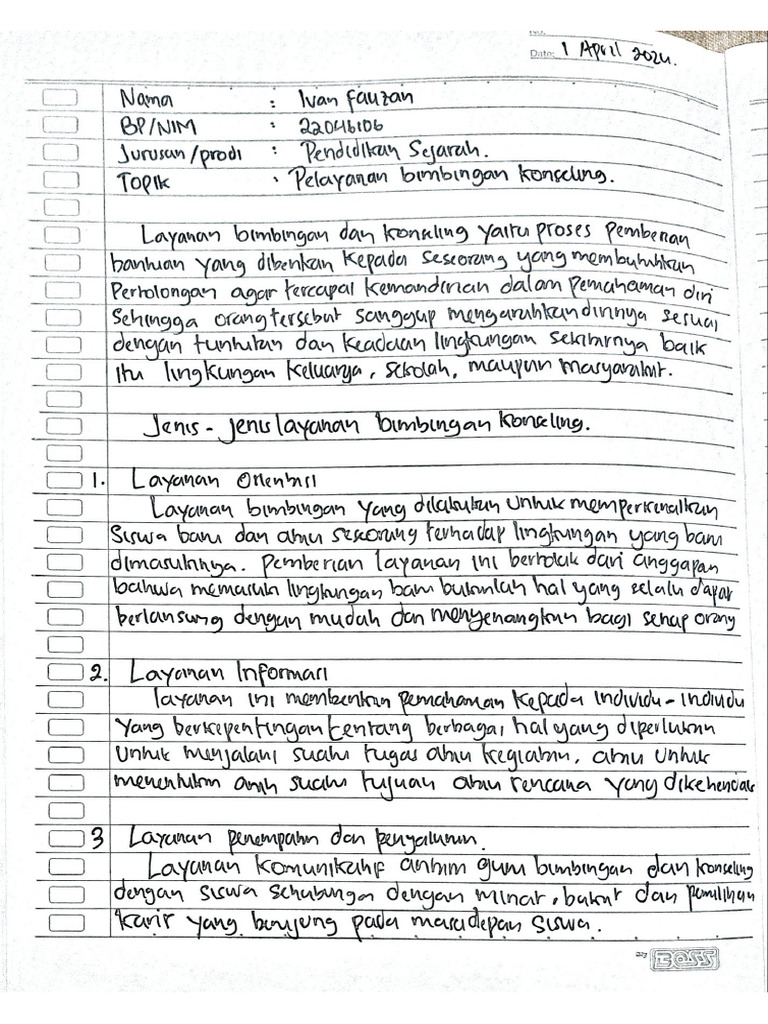 No.
Date: 1 April 2024.
Nama : Ivan Fauzan
BP/NIM : 22046106
Jurusan/prodi : Pendidikan Sejarah.
Topik : Pelayanan bimbingan konseling.
Layanan bimbingan dan konseling yaitu proses pemberian
bantuan yang diberikan kepada seseorang yang membutuhkan
Pertolongan agar tercapai kemandirian dalam pemahaman diri
Sehingga orang tersebut sanggup mengarahkan dirinya sesuai
dengan tuntutan dan keadaan lingkungan sekitarnya baik
itu lingkungan keluarga, sekolah, maupun masyarakat.
Jenis - jenis layanan bimbingan konseling.
1. Layanan Orientasi
Layanan bimbingan yang dilakukan untuk memperkenalkan
siswa baru dan atau seseorang terhadap lingkungan yang baru
dimasukinya. Pemberian layanan ini bertolak dari anggapan
bahwa memasuki lingkungan baru bukanlah hal yang selalu dapat
berlansung dengan mudah dan menyenangkan bagi setiap orang
2. Layanan Informasi
layanan ini memberikan pemahaman kepada individu - individu
yang berkepentingan tentang berbagai hal yang diperlukan
untuk menjalani suatu tugas atau kegiatan, atau untuk
menentukan arah suatu tujuan atau rencana yang dikehendaki
3 Layanan penempatan dan penyaluran.
Layanan komunikatif antara guru bimbingan dan konseling
dengan siswa sehubunga dengan minat, bakat dan pemilihan
karir yang berujung pada masa depan siswa.
BOSS